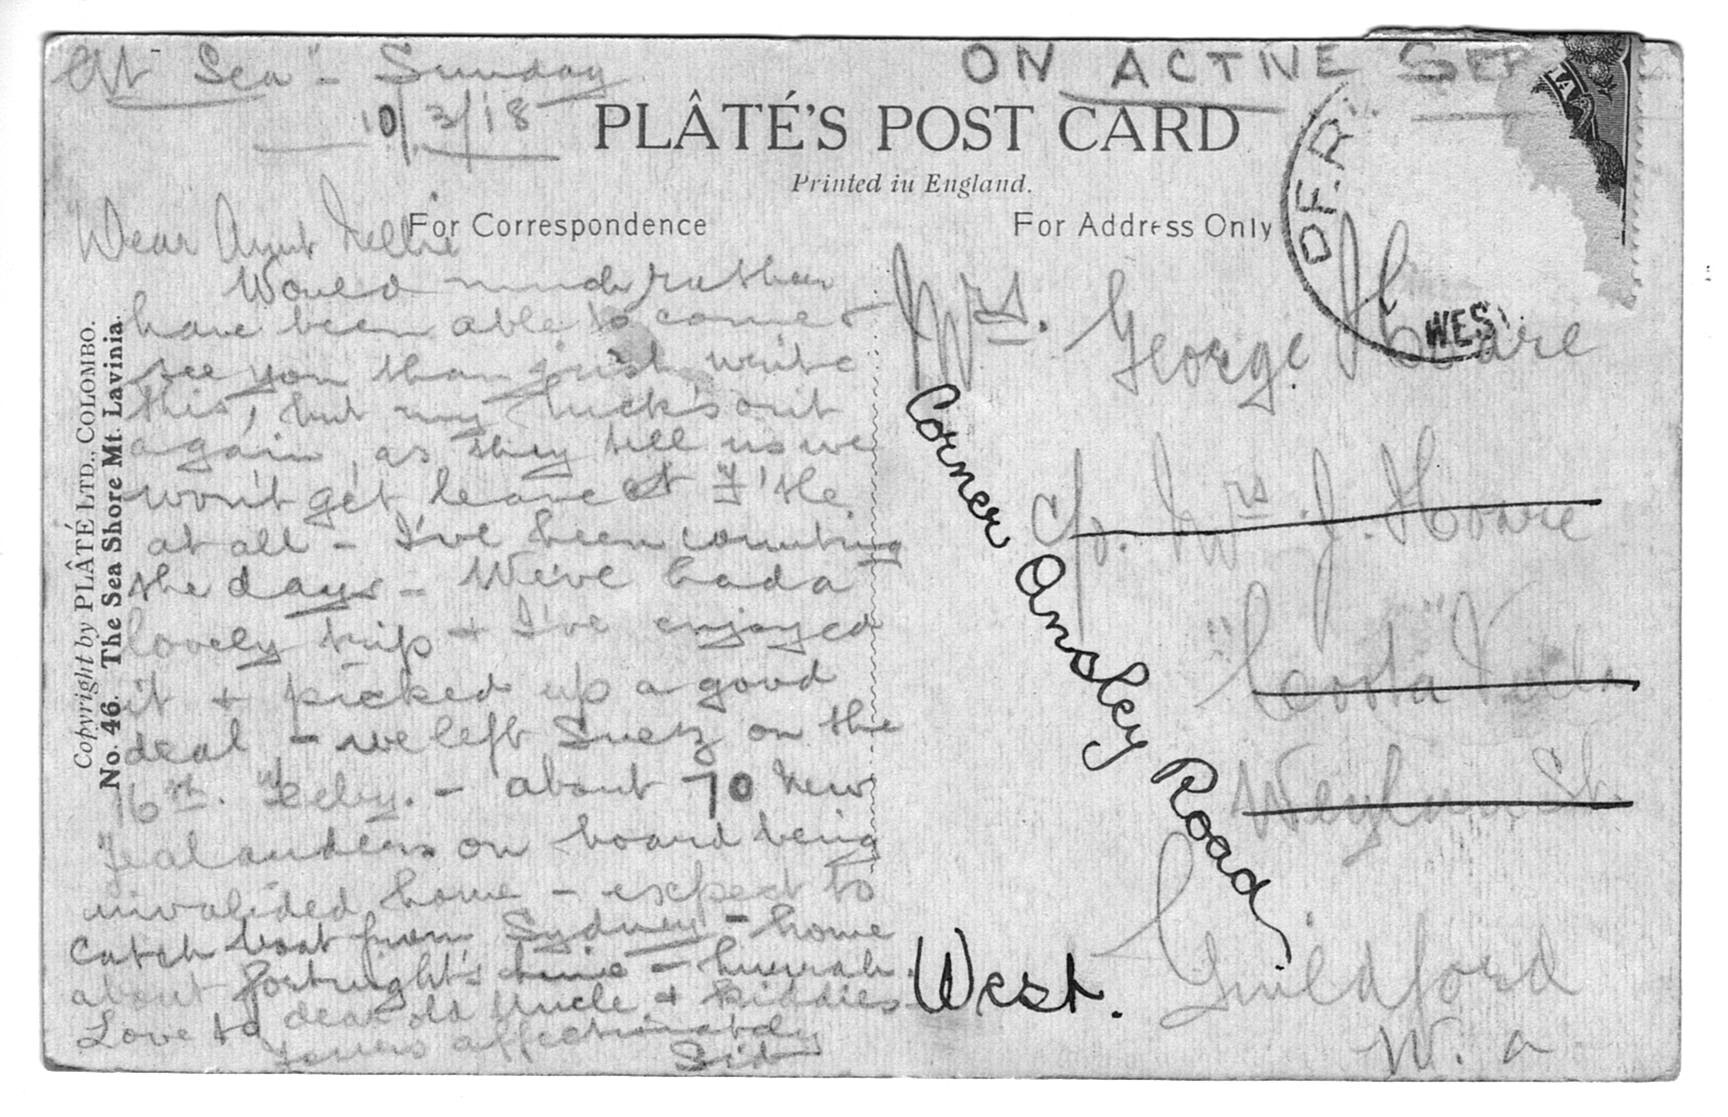 "At Sea" - Sunday
10/3/18
ON ACTIVE SER
PLÂTÉ'S POST CARD
Printed in England.
For Correspondence
For Address Only
Dear Aunt Nellie
Would much rather
have been able to come &
see you than just write
this, but my luck's out
again, as they tell us we
won't get leave at F'tle
at all - I've been counting
the days - We've had a
lovely trip & I've enjoyed
it & picked up a good
deal - we left Suez on the
16th. Feby. - about 70 New
Zealanders on board being
invalided home - expect to
catch boat from Sydney - home
about fortnight's time - hurrah.
Love to dear old Uncle & kiddies
Yours affectionately
Sid
Copyright by PLÂTÉ LTD., COLOMBO.
No. 46. The Sea Shore Mt. Lavinia.
DF.R.
WES
Mrs. George Hoare
c/o. Mrs J. Hoare
"Costa
St.
Corner Ansley Road
West. Guildford
W. A